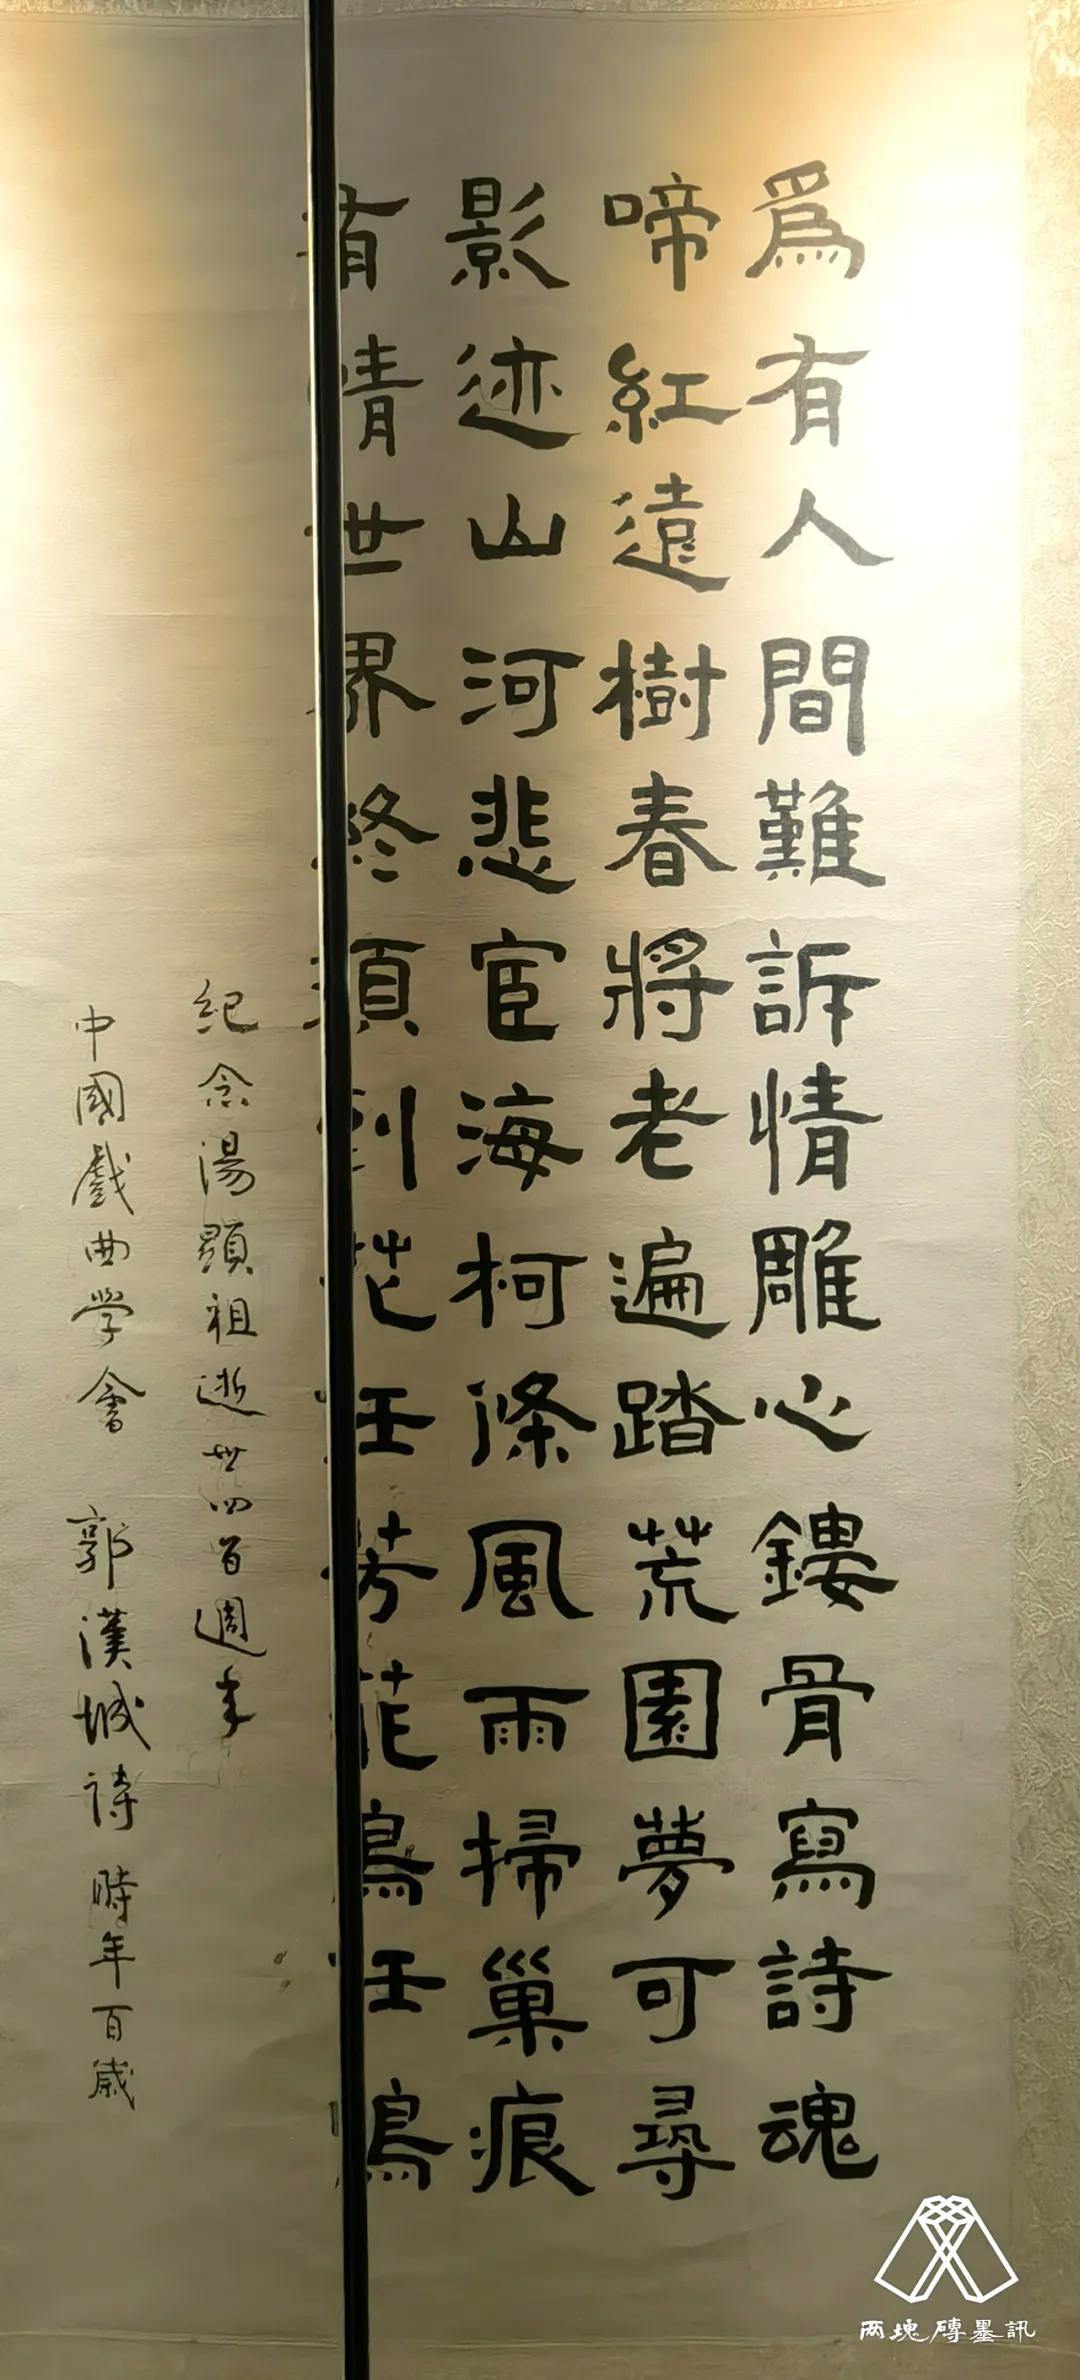 爲有人間難訴情雕心鏤骨寫詩魂
啼紅遠樹春將老遍踏荒園夢可尋
影迹山河悲宦海柯條風雨掃巢痕
有情世界終須到花任芳菲鳥任鳴
紀念湯顯祖逝世四百週年
中國戲曲学會 郭漢城詩 時年百歲
两塊磚墨訊